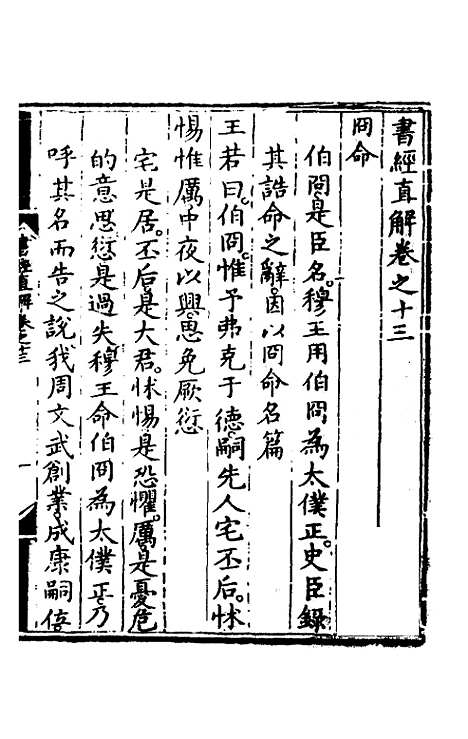 書經直解卷之十三
冏命
伯冏是臣名。穆王用伯冏為太僕正。史臣錄
其誥命之辭。因以冏命名篇
王若曰。伯冏。惟予弗克于德。嗣先人宅丕后。怵
惕惟厲。中夜以興。思免厥愆
宅是居。丕后是大君。怵惕是恐懼。厲是憂危
的意思。愆是過失。穆王命伯冏為太僕正。乃
呼其名而告之說。我周文武創業。成康嗣
書經直解卷之十三
一